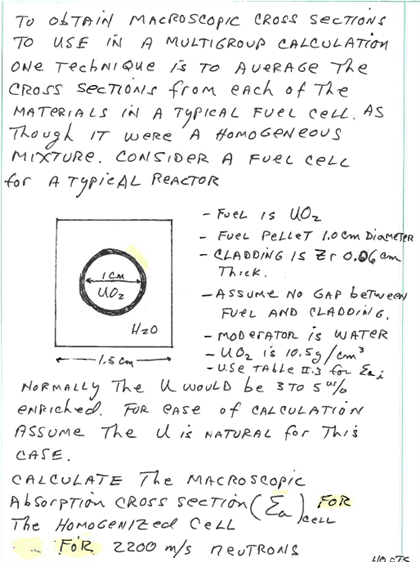 TO OBTAIN MACROSCOPIC CROSS SECTIONS
TO USE IN A MULTIGROUP CALCULATION
ONE TECHNIQUE IS TO AVERAGE THE
CROSS SECTIONS FROM EACH OF THE
MATERIALS IN A TYPICAL FUEL CELL. AS
THOUGH IT WERE A HOMOGENEOUS
MIXTURE. CONSIDER A FUEL CELL
for A TYPICAL REACTOR
1 CM
UO₂
H₂O
1.5 cm
- FUEL IS UO₂
- FUEL PELLET 1.0 cm DIAMETER
- CLADDING IS Zr 0.06 cm
THICK.
- ASSUME NO GAP between
FUEL AND CLADDING.
- MODERATOR IS WATER
- UO₂ IS 10.5 g/cm³
- USE TABLE II.3 for Σai
NORMALLY THE U WOULD BE 3 TO 5 w/o
ENRICHED. FOR EASE OF CALCULATION
ASSUME THE U IS NATURAL for THIS
CASE.
CALCULATE THE MACROSCOPIC
Absorption CROSS SECTION (Σa)CELL FOR
THE HOMOGENIZED CELL
FOR 2200 m/s NEUTRONS